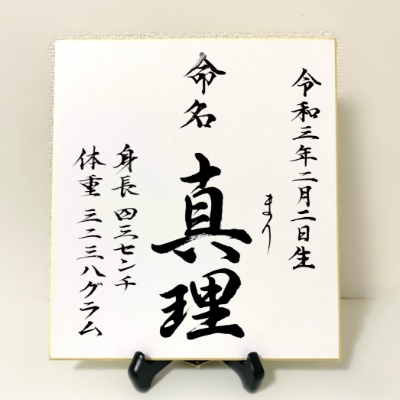 令和三年二月二日生
まり
命名
真理
身長 四三センチ
体重 三二三八グラム